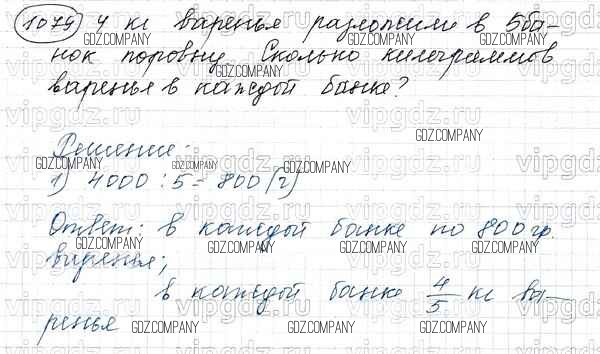 1075 4 кг варенья разложили в 5 ба-
нок поровну. Сколько килограммов
варенья в каждой банке?
Решение:
1) 4000 : 5 = 800 (г)
Ответ: в каждой банке по 800 гр.
варенья;
в каждой банке 4/5 кг ва-
ренья